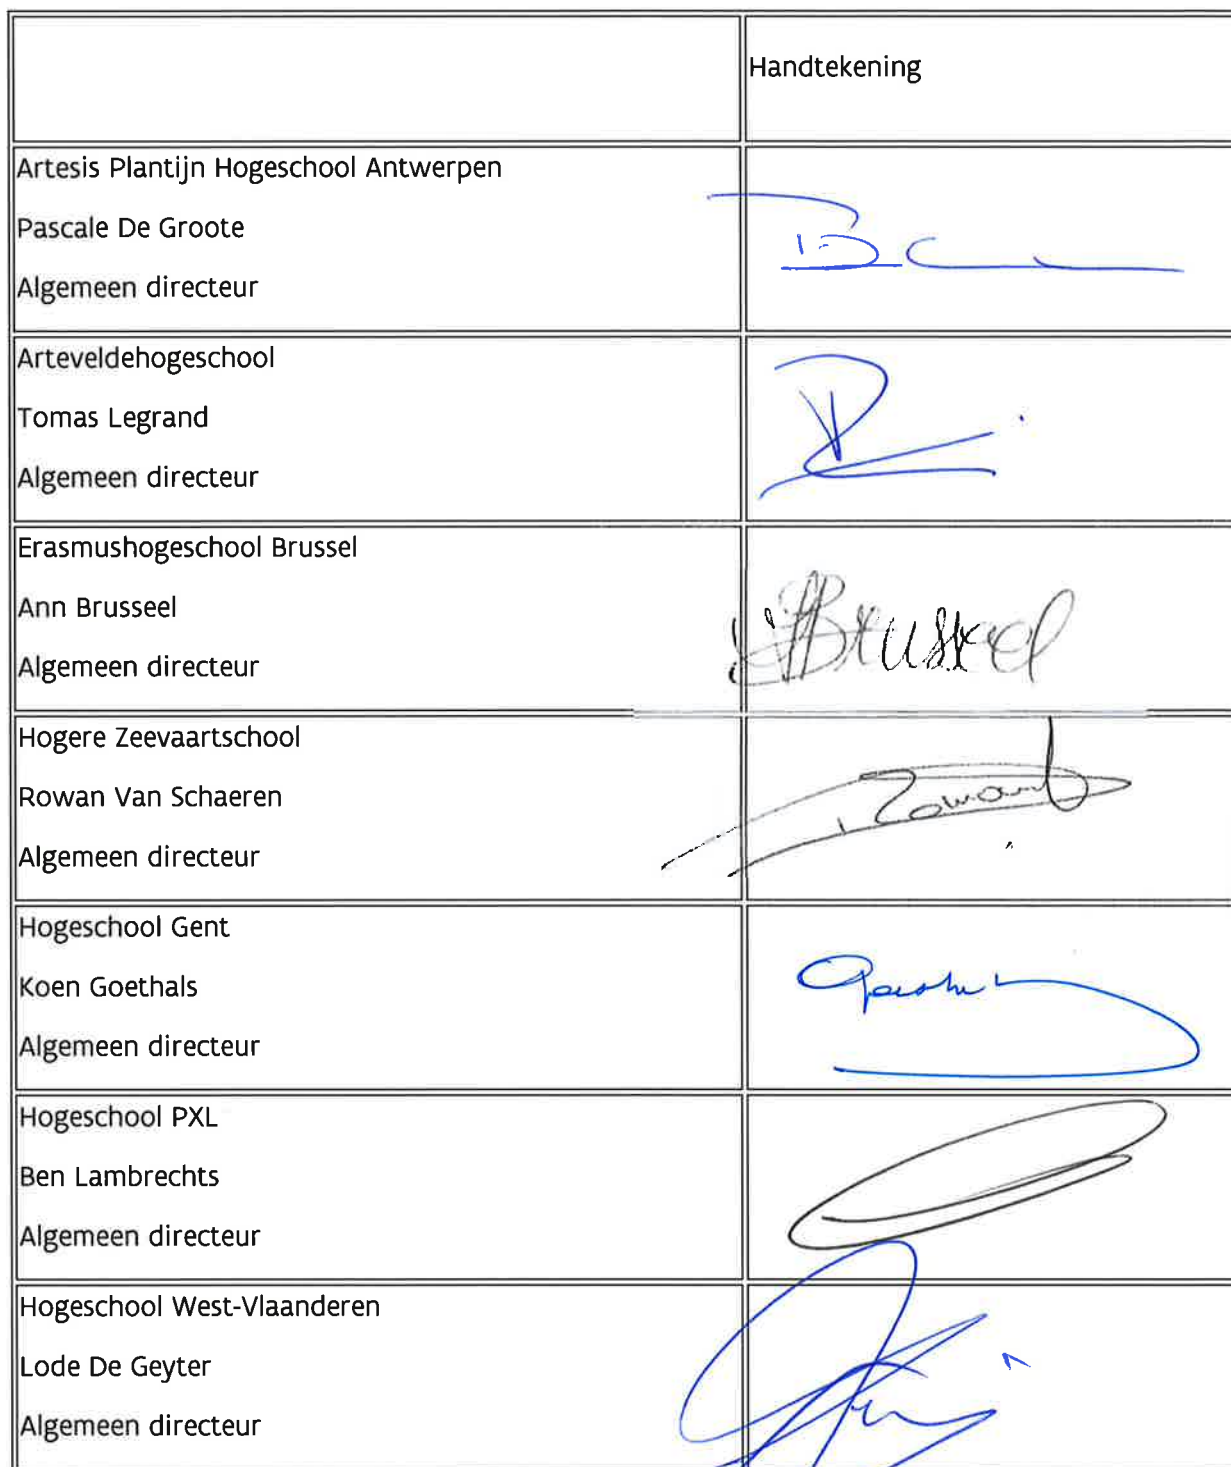 Handtekening
Artesis Plantijn Hogeschool Antwerpen
Pascale De Groote
Algemeen directeur
Arteveldehogeschool
Tomas Legrand
Algemeen directeur
Erasmushogeschool Brussel
Ann Brusseel
Algemeen directeur
Brusseel
Hogere Zeevaartschool
Rowan Van Schaeren
Algemeen directeur
Rowan
Hogeschool Gent
Koen Goethals
Algemeen directeur
Hogeschool PXL
Ben Lambrechts
Algemeen directeur
Hogeschool West-Vlaanderen
Lode De Geyter
Algemeen directeur